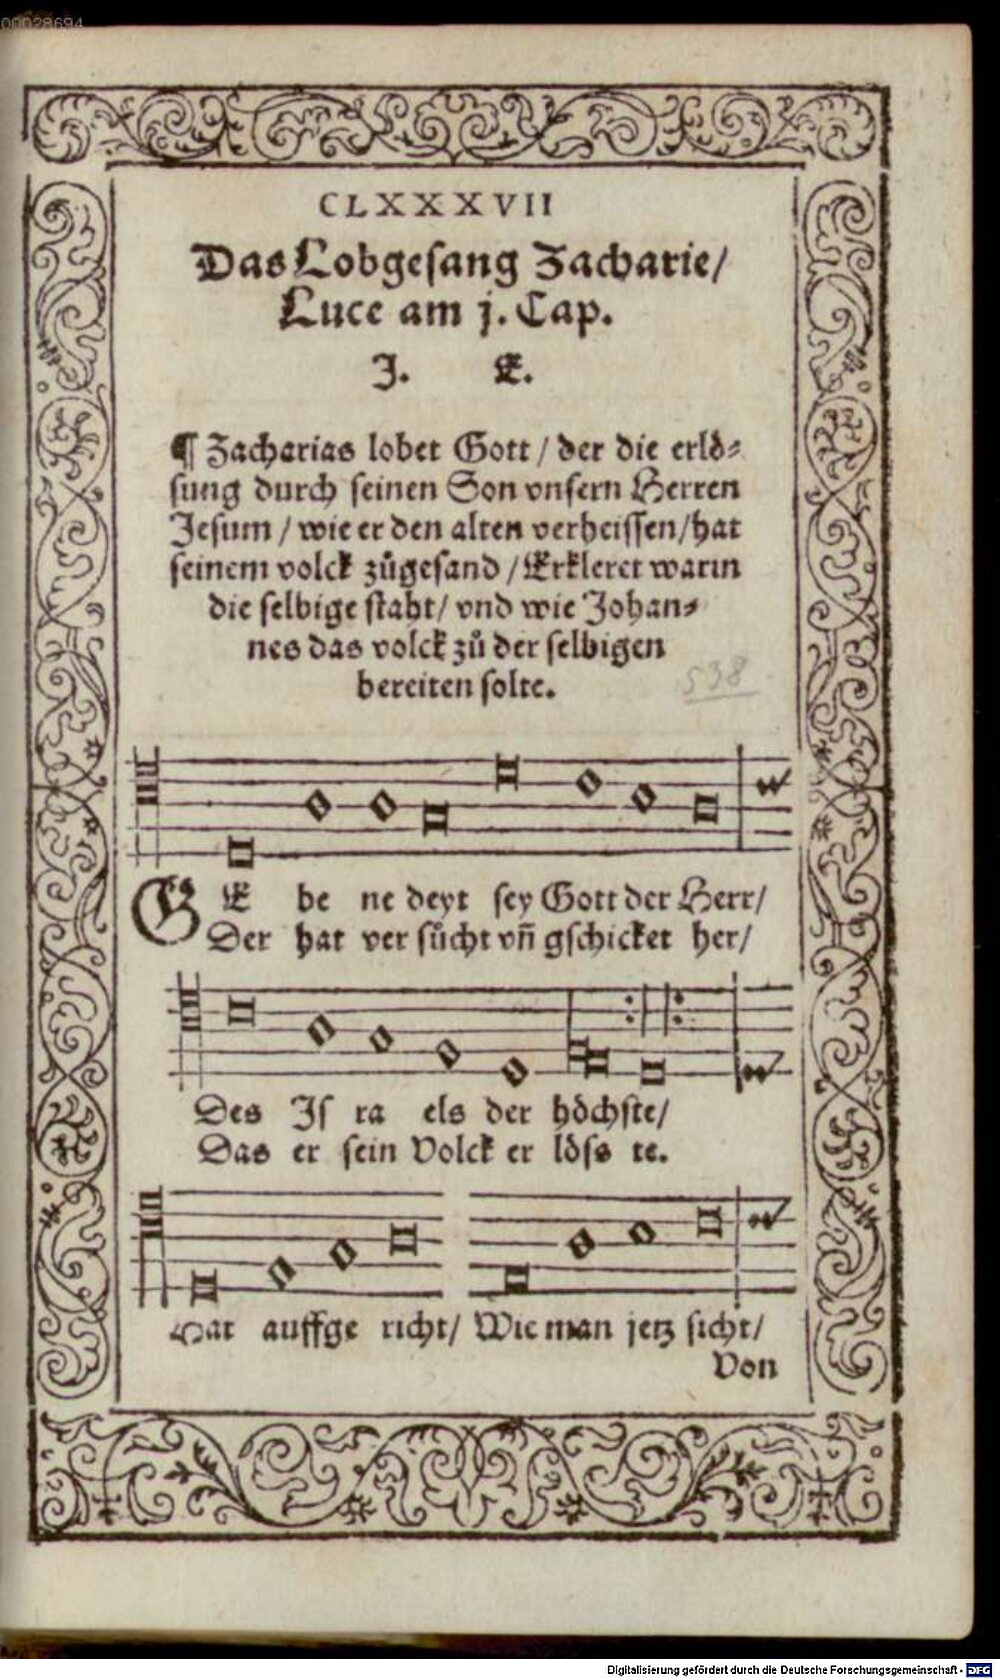 00028694
CLXXXVII
Das Lobgesang Zacharie/
Luce am j. Cap.
J. E.
¶ Zacharias lobet Gott / der die erlö⸗
sung durch seinen Son vnsern Herren
Jesum / wie er den alten verheissen/hat
seinem volck zůgesand / Erkleret warin
die selbige staht/ vnd wie Johan⸗
nes das volck zů der selbigen
bereiten solte.
538
GE be ne deyt sey Gott der Herr/
Der hat ver sůcht vñ gschicket her/
Des Is ra els der höchste/
Das er sein Volck er löss te.
Hat auffge richt/ Wie man jetz sicht/
Von
Digitalisierung gefördert durch die Deutsche Forschungsgemeinschaft - DFG